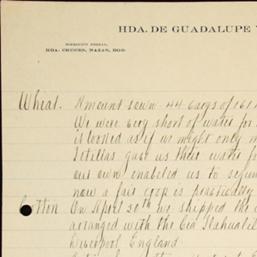 HDA. DE GUADALUPE
HDA: CRUCES, NAZAS, DGO.
Wheat. Amount sown - 44 cargs of 161
We were very short of water for
it looked as if we might only
gave us their water for
our own enabled us to
now a fair crop is practically
Cotton On April 30th we shipped the
arranged with the Cia Tlahualil
Liverpool, England